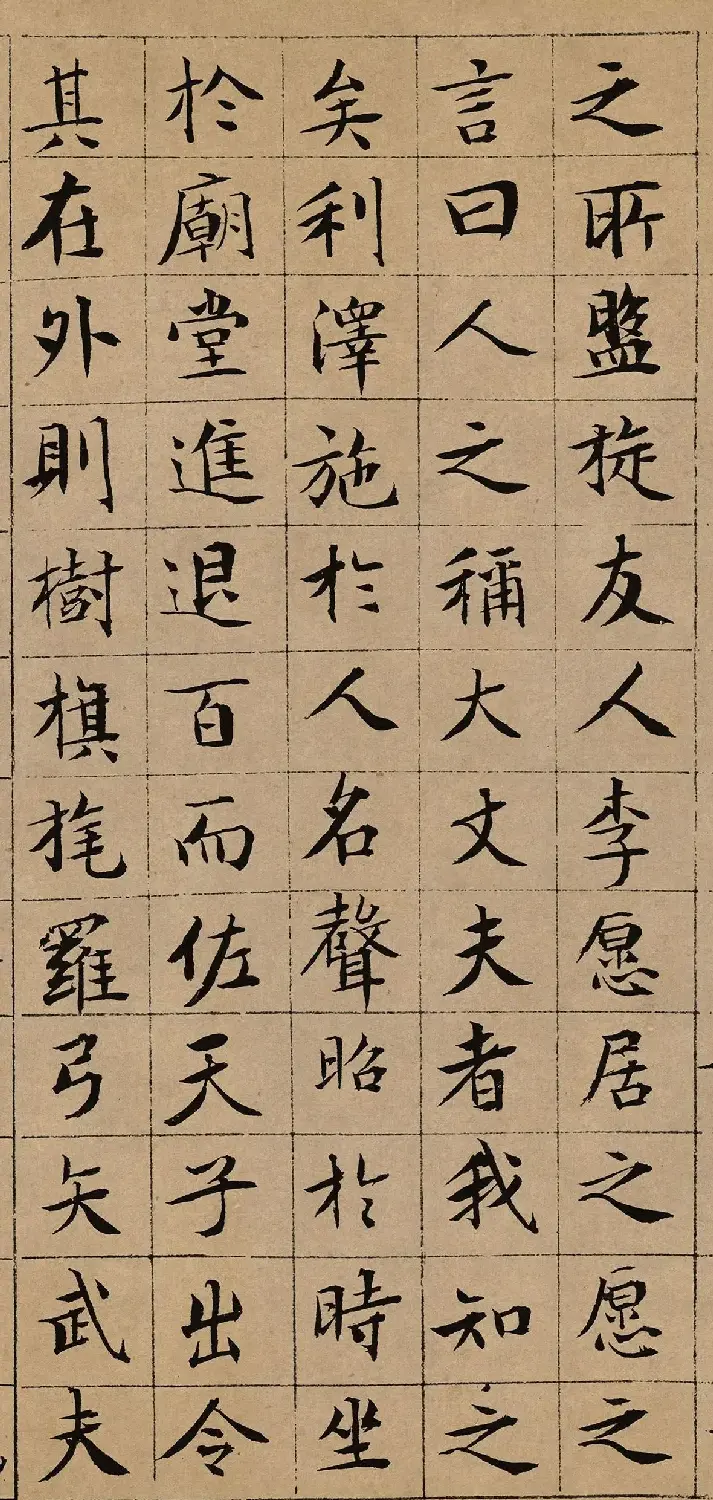 之所盤旋友人李愿居之愿之
言曰人之稱大丈夫者我知之
矣利澤施於人名聲昭於時坐
於廟堂進退百而佐天子出令
其在外則樹旗旄羅弓矢武夫